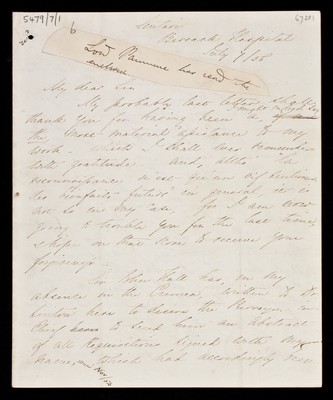 5479/7/1
67201
Scutari
Barrack Hospital
July 7/56
6
Lord Panmure has read the
enclosure
My dear Sir
My probably last letter
thank you for having been a
the most material assistance to my
work - which I shall ever remember
with gratitude and, altho' "la
reconnaissance n'est qu'un vif
des bienfaits futurs" in general, it is
not so in my case, for I am now
going to trouble you for the last time,
& hope on that score to receive your
forgiveness.
Sir John Hall has, in my
absence in the Crimea, written to Dr
Linton here to desire the Purveyor in
Chief here to send him an Abstract
of all Requisitions signed with my
name, which had accordingly been